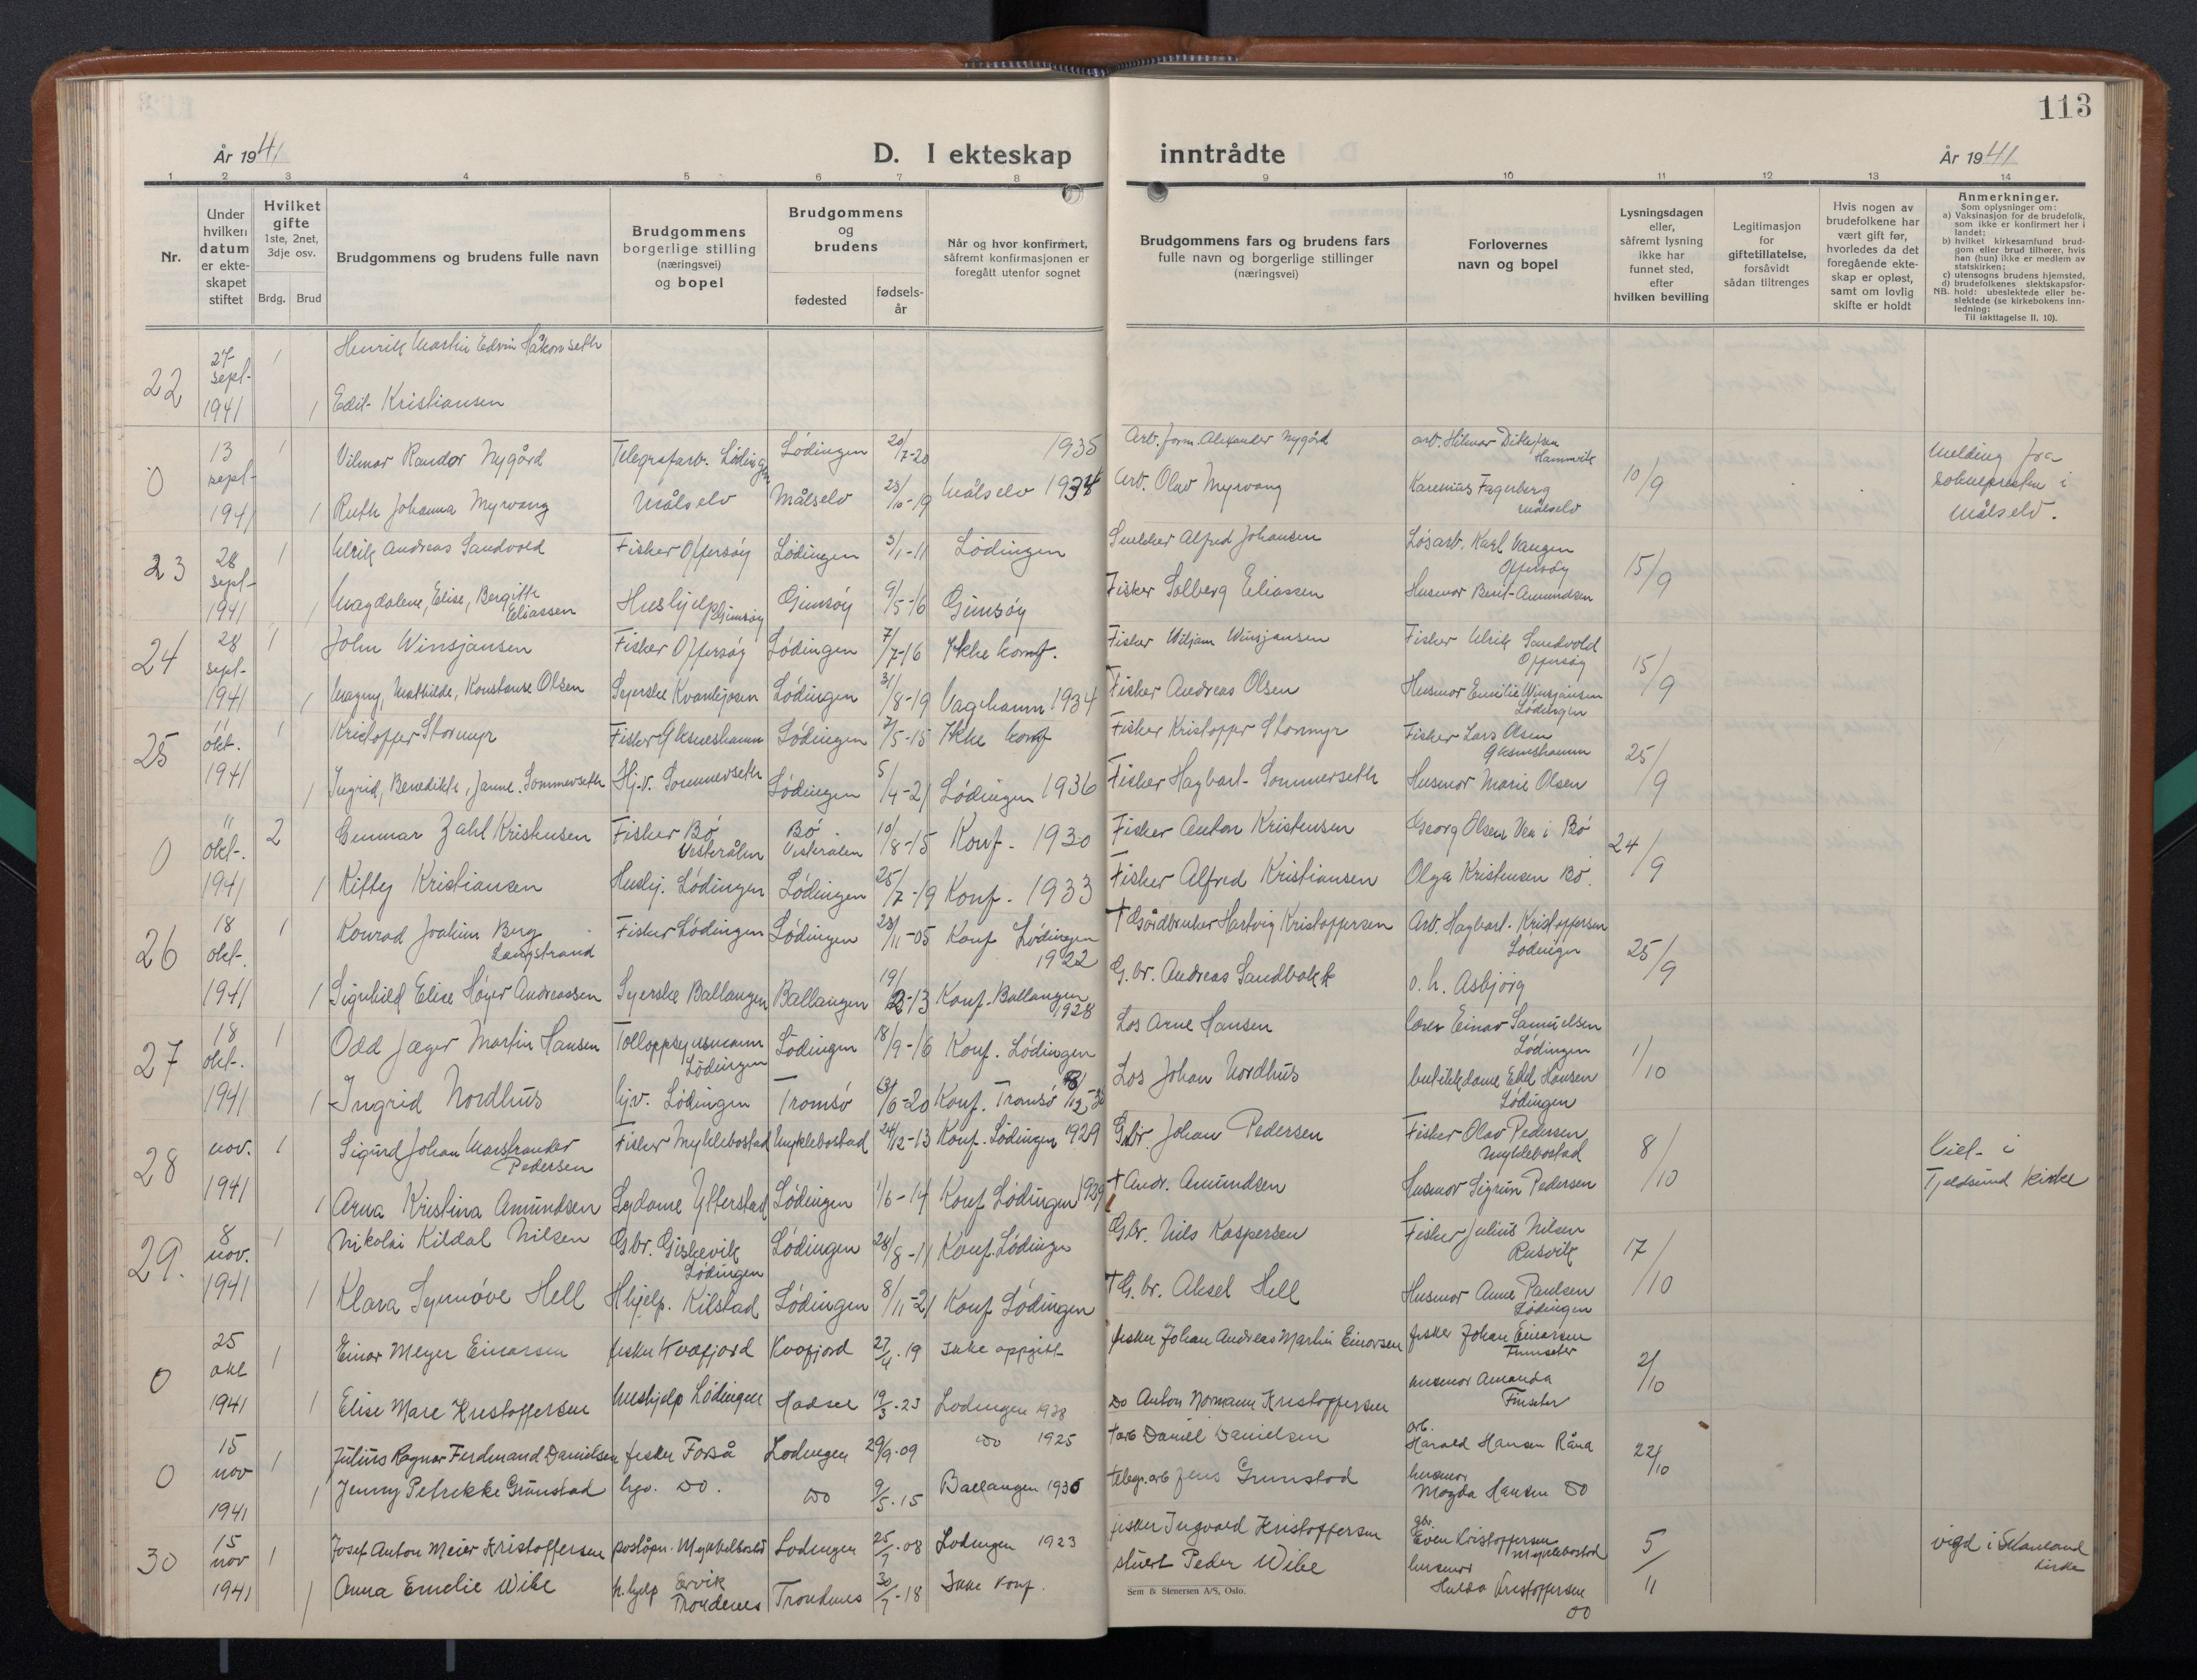 113
År 1941
D. I ekteskap inntrådte
År 1941
1 2 3 4 5 6 7 8 9 10 11 12 13 14
Nr.
Under
hvilken
datum
er ekte-
skapet
stiftet
Hvilket
gifte
1ste, 2net,
3dje osv.
Brdg. Brud
Brudgommens og brudens fulle navn
Brudgommens
borgerlige stilling
(næringsvei)
og bopel
Brudgommens
og
brudens
fødested
fødsels-
år
Når og hvor konfirmert,
såfremt konfirmasjonen er
foregått utenfor sognet
Brudgommens fars og brudens fars
fulle navn og borgerlige stillinger
(næringsvei)
Forlovernes
navn og bopel
Lysningsdagen
eller,
såfremt lysning
ikke har
funnet sted,
efter
hvilken bevilling
Legitimasjon
for
giftetillatelse,
forsåvidt
sådan tiltrenges
Hvis nogen av
brudefolkene har
vært gift før,
hvorledes da det
foregående ekte-
skap er opløst,
samt om lovlig
skifte er holdt
Anmerkninger.
Som oplysninger om:
a) Vaksinasjon for de brudefolk,
som ikke er konfirmert her i
landet;
b) hvilket kirkesamfund brud-
gom eller brud tilhører, hvis
han (hun) ikke er medlem av
statskirken;
c) utensogns brudens hjemsted,
d) brudefolkenes slektskapsfor-
hold: ubeslektede eller be-
slektede (se kirkebokens inn-
ledning:
NB.
Til iakttagelse II, 10).
22 27 sept- 1941 1 Henrik Martin Edvin Håkonseth
1 Edit Kristiansen
0 13 sept- 1941 1 Vilmar Randor Nygård Telegrafarb. Lödingen Lödingen 20/7-20 1935 Arb. form. Alexander Nygård arb. Hilmar Ditlefsen Hammvik 10/9 Melding fra soknepresten i Målselv.
1 Ruth Johanna Myrvang Målselv Målselv 23/10-19 Målselv 1934 Arb. Olav Myrvang Karenius Fagerberg Målselv
23 28 sept- 1941 1 Ulrik Andreas Sandvold Fisker Offersöy Lödingen 3/1-11 Lödingen Snekker Alfred Johansen Lösarb. Karl Vangen Offersöy 15/9
1 Magdalene, Elise, Bergitte Eliassen Hushjelp Gimsöy Gimsöy 9/5-16 Gimsöy Fisker Solberg Eliassen Husmor Berit Amundsen
24 28 sept- 1941 1 John Winsjansen Fisker Offersöy Lödingen 7/7-16 Ikke konf. Fisker Wiljam Winsjansen Fisker Ulrik Sandvold Offersöy 15/9
1 Magny, Mathilde, Konstanse Olsen Syerske Kvannkjosen Lödingen 31/8-19 Vagehamn 1934 Fisker Andreas Olsen Husmor Emilie Winsjansen Lödingen
25 11 okt. 1941 1 Kristoffer Stormyr Fisker Öksneshamn Lödingen 7/5-15 Ikke konf Fisker Kristoffer Stormyr Fisker Lars Olsen Öksneshamn 25/9
1 Ingrid, Benedikte, Janne. Sommerseth Hj.v. Sommerseth Lödingen 5/4-21 Lödingen 1936 Fisker Hagbart Sommerseth Husmor Marie Olsen
0 11 okt. 1941 2 Gunnar Zahl Kristensen Fisker Bö Vesterålen Bö Vesterålen 10/8-15 Konf. 1930 Fisker Anton Kristensen Georg Olsen Vea i Bö 24/9
1 Kitty Kristiansen Hushj. Lödingen Lödingen 25/7-19 Konf. 1933 Fisker Alfred Kristiansen Olga Kristensen Bö.
26 18 okt. 1941 1 Konrad Joakim Berg Langstrand Fisker Lödingen Lödingen 23/11-05 Konf Lödingen 1922 † Gårdbruker Hartvig Kristoffersen Arb. Hagbart Kristoffersen Lödingen 25/9
1 Signhild Elise Höyer Andreassen Syerske Ballangen Ballangen 19/2-13 Konf. Ballangen 1928 G. br. Andreas Sandbakk o. h. Asbjörg
27 18 okt. 1941 1 Odd Jæger Martin Hansen Tolloppsynsmann Lödingen Lödingen 18/9-16 Konf. Lödingen Los Arne Hansen lærer Einar Samuelsen Lödingen 1/10
1 Ingrid Nordhus hjv. Lödingen Tromsö /6-20 Konf. Tromsö Los Johan Nordhus butikkdame Edd Hansen Lödingen
28 nov. 1941 1 Sigurd Johan Marstrander Pedersen Fisker Myklebostad Myklebostad 24/12-13 Konf. Lödingen 1929 Gbr. Johan Pedersen Fisker Olav Pedersen Myklebostad 8/10 Viet i Tjeldsund kirke
1 Arna Kristina Amundsen Sydame Ytterstad Lödingen 1/6-14 Konf Lödingen 1929 † Andr. Amundsen Husmor Sigrun Pedersen
29. 8 nov. 1941 1 Nikolai Kildal Nilsen Gbr. Giskevik Lödingen Lödingen 28/8-11 Konf. Lödingen Gbr. Nils Kaspersen Fisker Julius Nilsen Rusvik 17/10
1 Klara Synnöve Hell Hhjelp. Kilstad Lödingen 8/11-21 Konf Lödingen † G. br. Aksel Hell Husmor Anne Paulsen Lödingen
0 25 okt 1941 1 Einar Meyer Einarsen fisker Kvæfjord Kvæfjord 27/4-19 Ikke oppgitt fisker Johan Andreas Martin Einarsen fisker Johan Einarsen Finnseter 2/10
1 Elise Mare Kristoffersen hushjelp Lödingen Hadsel 19/3-23 Lodingen 1938 Do Anton Normann Kristoffersen husmor Amanda Finseter
0 15 nov 1941 1 Julius Ragnar Ferdinand Danielsen fisker Forså Lodingen 29/9-09 Do 1925 † arb Daniel Danielsen arb. Harald Hansen Råna 22/10
1 Jenny Petrikke Grunstad hjv. Do. Do 9/5-15 Ballangen 1930 telegr. arb Jens Grunstad husmor Magda Hansen Do
30 15 nov 1941 1 Josef Anton Meier Kristoffersen poståpn. Myklebostad Lodingen 25/7-08 Lodingen 1923 fisker Ingvald Kristoffersen gbr. Even Kristoffersen Myklebostad 5/11 vigd i Skånland kirke
1 Anna Emelie Wibe h. hjelp Ervik Trondenes Trondenes 30/7-18 Ikke konf. stuert Peder Wibe husmor Hulda Kristoffersen Do
Sem & Stenersen A/S, Oslo.